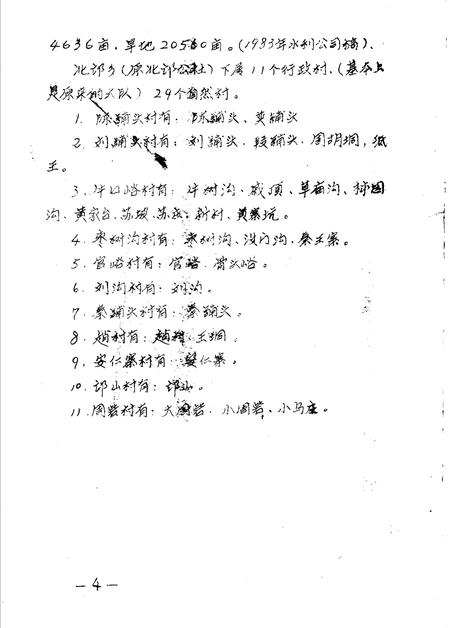 4636亩，旱地20580亩。(1983年水利公司稿)、
北邙乡(原北邙公社)下属11个行政村，(基本上
是原来的大队)29个自然村。
1、陈铺头村有：陈铺头、黄铺头
2、刘铺头村有：刘铺头、段铺头、周胡垌、
王。
3、牛口峪村有：牛树沟、戚顶、草庙沟、
沟、黄家台、苏坡、苏庄、新村、黄寨沆。
4、枣树沟村有：枣树沟、没门沟、秦王寨。
5、官峪村有：官峪、骨头峪。
6、刘沟村有：刘沟。
7、秦铺头村有：秦铺头。
8、赵村有：赵村、王垌。
9、安仁寨村有：安仁寨。
10、邙山村有：邙山。
11、周砦村有：大周砦、小周砦、小马庄。
－4－